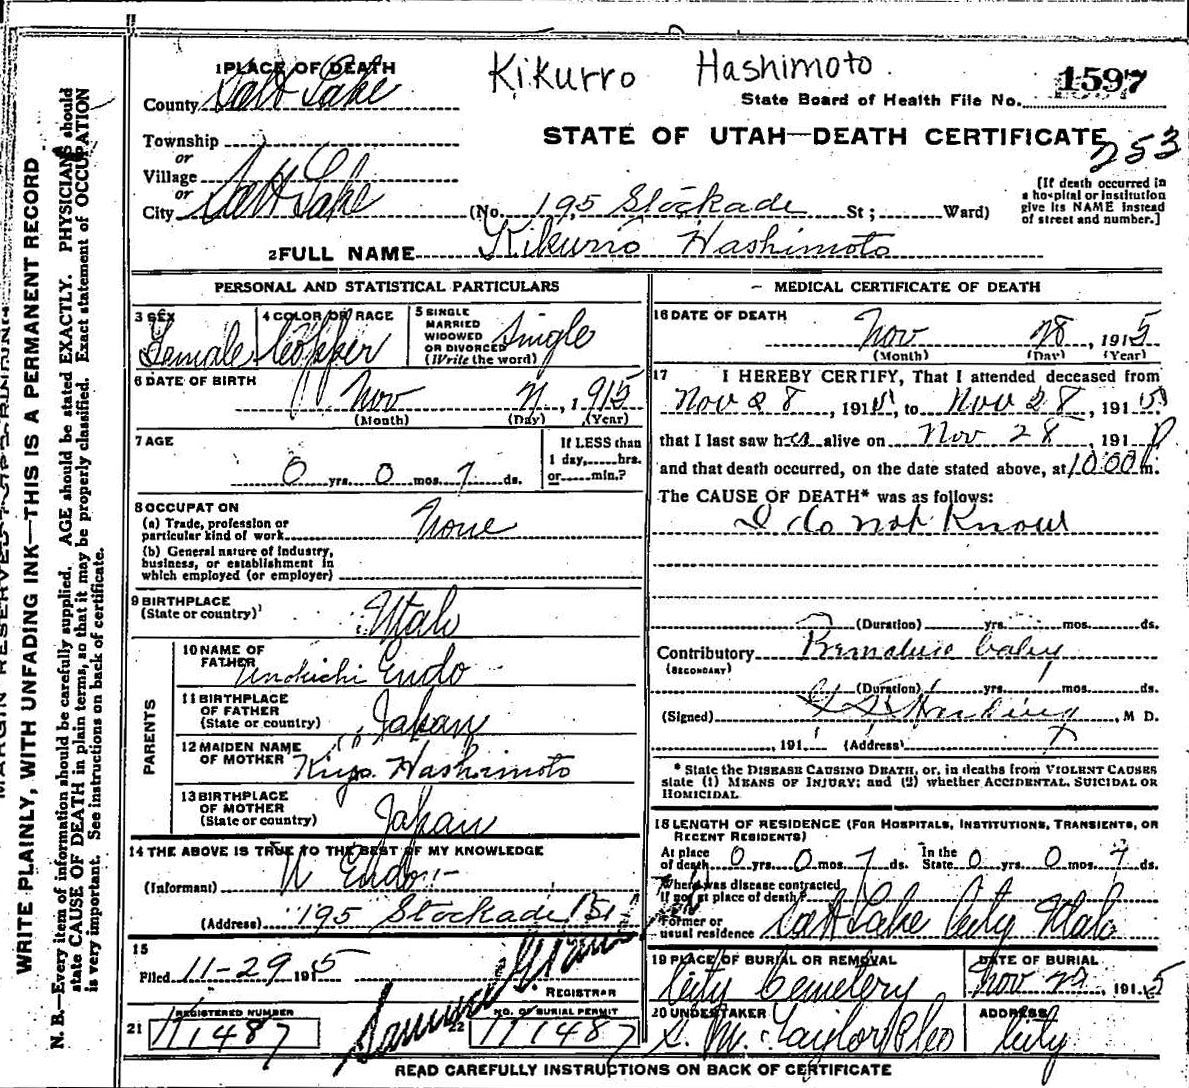 Kikurro Hashimoto
1597
State Board of Health File No.
STATE OF UTAH—DEATH CERTIFICATE
253
1 PLACE OF DEATH
County Salt Lake
Township
or
Village
or
City Salt Lake
(No. 195 Stockade St; Ward)
[If death occurred in
a hospital or institution
give its NAME instead
of street and number.]
2 FULL NAME Kikurro Hashimoto
PERSONAL AND STATISTICAL PARTICULARS
3 SEX
Female
4 COLOR OR RACE
Copper
5 SINGLE
MARRIED
WIDOWED
OR DIVORCED
(Write the word)
Single
6 DATE OF BIRTH
Nov 21, 1915
(Month) (Day) (Year)
7 AGE
0 yrs. 0 mos. 7 ds.
If LESS than
1 day, hrs.
or min.?
8 OCCUPATION
(a) Trade, profession or
particular kind of work None
(b) General nature of industry,
business, or establishment in
which employed (or employer)
9 BIRTHPLACE
(State or country)
Utah
PARENTS
10 NAME OF
FATHER
Unokichi Endo
11 BIRTHPLACE
OF FATHER
(State or country)
Japan
12 MAIDEN NAME
OF MOTHER
Kiyo Hashimoto
13 BIRTHPLACE
OF MOTHER
(State or country)
Japan
14 THE ABOVE IS TRUE TO THE BEST OF MY KNOWLEDGE
(Informant) U Endo
(Address) 195 Stockade St
15
Filed 11-29 1915
REGISTRAR
21 REGISTERED NUMBER
22 NO. OF BURIAL PERMIT
MEDICAL CERTIFICATE OF DEATH
16 DATE OF DEATH
Nov 28, 1915
(Month) (Day) (Year)
17 I HEREBY CERTIFY, That I attended deceased from
Nov 28, 1915, to Nov 28, 1915
that I last saw her alive on Nov 28, 191
and that death occurred, on the date stated above, at 10:00 m.
The CAUSE OF DEATH* was as follows:
I do not Know
(Duration) yrs. mos. ds.
Contributory Premature baby
(SECONDARY)
(Duration) yrs. mos. ds.
(Signed) , M D.
, 191 (Address)
* State the DISEASE CAUSING DEATH, or, in deaths from VIOLENT CAUSES
state (1) MEANS OF INJURY; and (2) whether ACCIDENTAL, SUICIDAL OR
HOMICIDAL.
18 LENGTH OF RESIDENCE (FOR HOSPITALS, INSTITUTIONS, TRANSIENTS, OR
RECENT RESIDENTS)
At place
of death 0 yrs. 0 mos. 7 ds. In the
State 0 yrs. 0 mos. 7 ds.
Where was disease contracted
If not at place of death?
Former or
usual residence Salt Lake City Utah
19 PLACE OF BURIAL OR REMOVAL
City Cemetery
DATE OF BURIAL
Nov 1915
20 UNDERTAKER
S. M. Taylor & Co
ADDRESS
City
READ CAREFULLY INSTRUCTIONS ON BACK OF CERTIFICATE
WRITE PLAINLY, WITH UNFADING INK—THIS IS A PERMANENT RECORD
N. B.—Every item of information should be carefully supplied. AGE should be stated EXACTLY. PHYSICIANS should
state CAUSE OF DEATH in plain terms, so that it may be properly classified. Exact statement of OCCUPATION
is very important. See instructions on back of certificate.